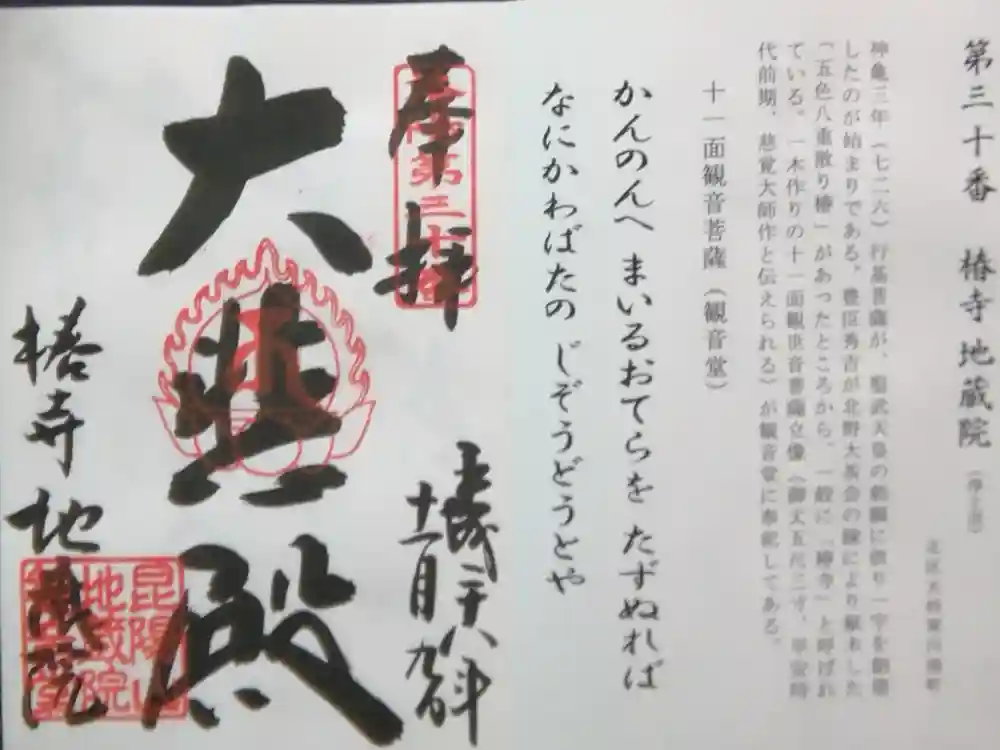 第三十番 椿寺地蔵院（浄土宗）
神亀三年（七二六）行基菩薩が、聖武天皇の勅願に依り一宇を創建
したのが始まりである。豊臣秀吉が北野大茶会の縁により献木した
「五色八重散り椿」があったところから、一般に「椿寺」と呼ばれ
ている。一木作りの十一面観世音菩薩立像（御丈五尺三寸、平安時
代前期、慈覚大師作と伝えられる）が観音堂に奉祀してある。
十一面観音菩薩（観音堂）
かんのんへ まいるおてらを たずぬれば
なにかわばたの じぞうどうとや
奉拝
第三十番
平成二十八年
十一月九日
大悲殿
椿寺地蔵院
昆陽山
地蔵院